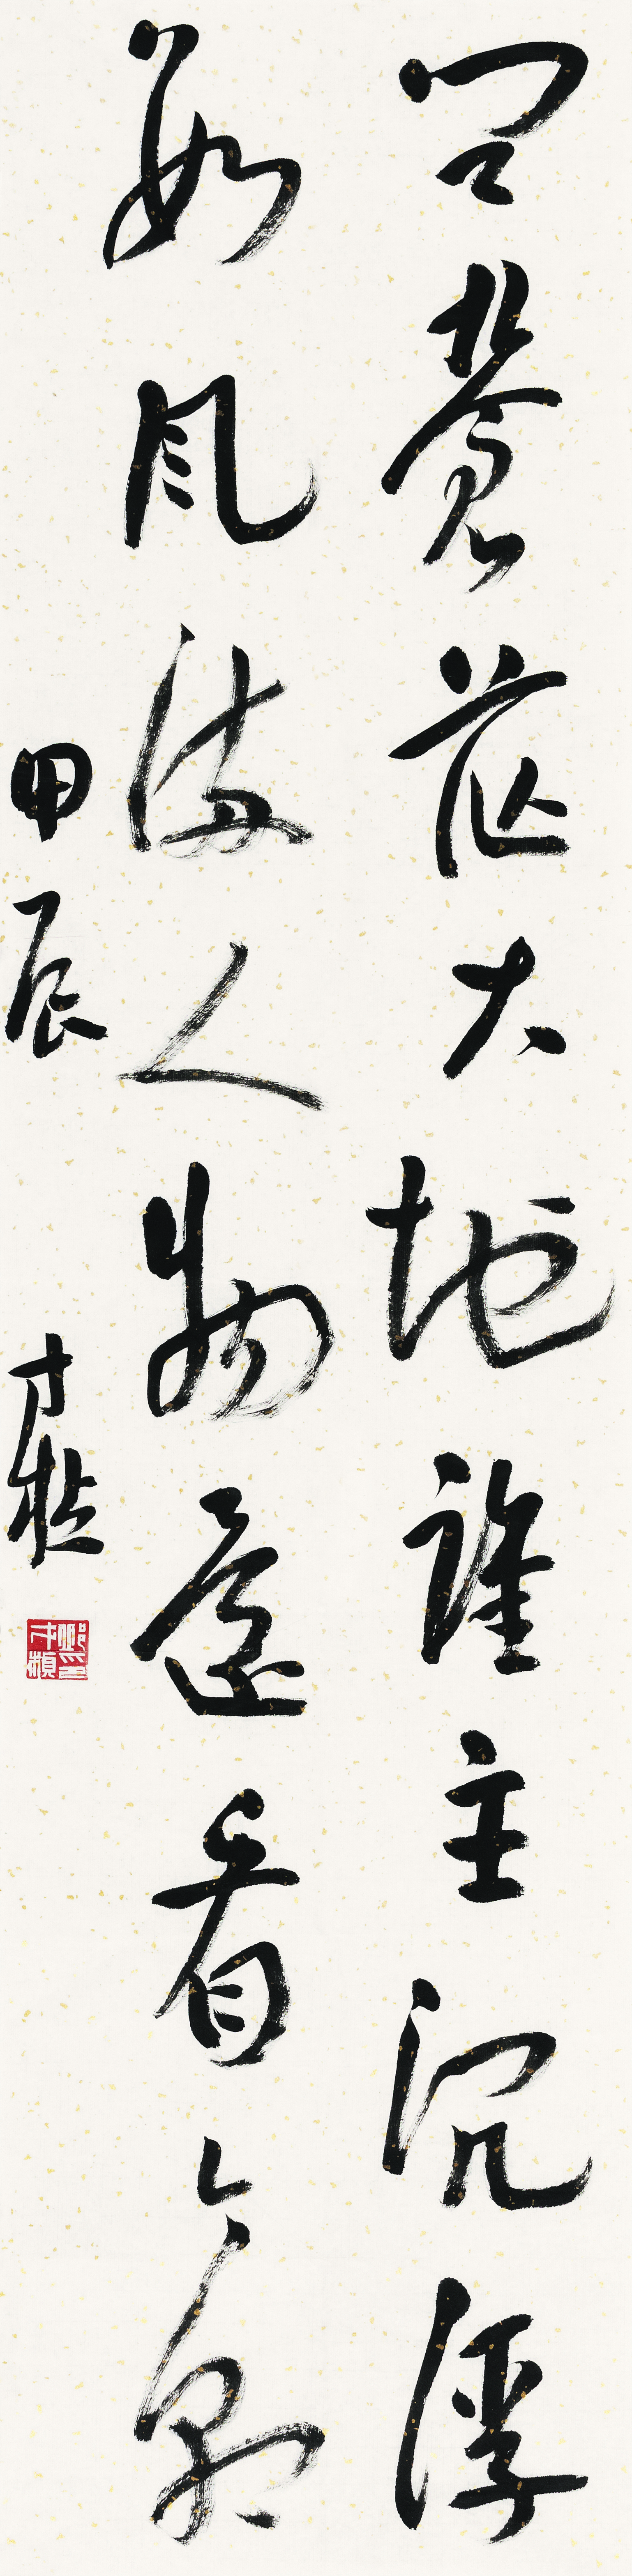 问苍茫大地谁主沉浮
数风流人物还看今朝
甲辰
才